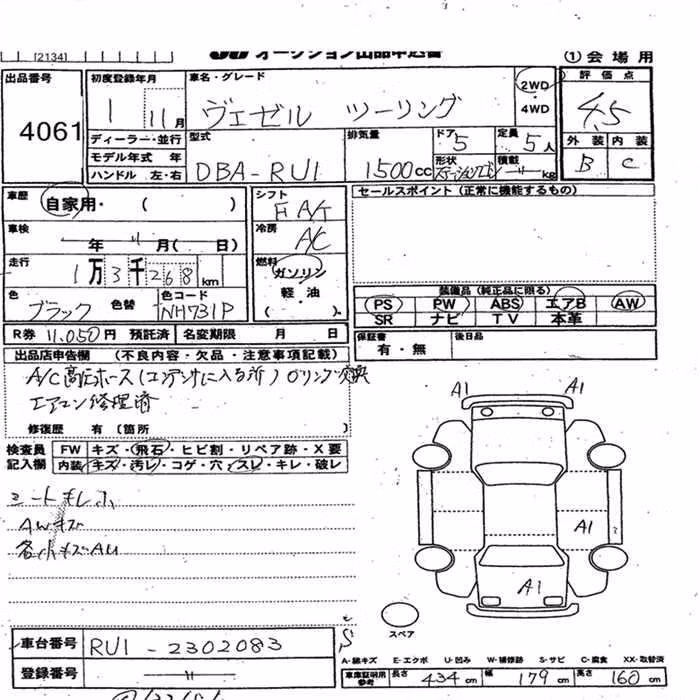 [2134] オークション出品申込書 ①会場用
出品番号 4061
初度登録年月 1 11月
車名・グレード ヴェゼル ツーリング
2WD・4WD
評価点 4.5
外装 B 内装 C
ディーラー・並行
モデル年式 年
ハンドル 左・右
型式 DBA-RU1
排気量 1500cc
ドア 5
定員 5人
形状 ステーションワゴン
積載 kg
車歴 自家用・( )
車検 年 月( 日)
走行 1万3千268km
色 ブラック 色替
色コード NH731P
シフト FAT
冷房 A/C
燃料 ガソリン
軽・油
( )
セールスポイント(正常に機能するもの)
装備品(純正品に限る)
PS PW ABS エアB AW
SR ナビ TV 本革
保証書 有・無 後日品
R券 11,050円 預託済 名変期限 月 日
出品店申告欄 (不良内容・欠品・注意事項記載)
A/C高圧ホース(コンデンサに入る所)Oリング交換
エアコン修理済
修復歴 有〔箇所 〕
検査員記入欄
FW キズ・飛石・ヒビ割・リペア跡・X要
内装 キズ・汚レ・コゲ・穴・スレ・キレ・破レ
AWキズ
A1 A1
A1
A1
スペア
車台番号 RU1-2302083
登録番号
A-線キズ E-エクボ U-凹み W-補修跡 S-サビ C-腐食 XX-取替済
車庫証明用参考 長さ 434cm 幅 179cm 高さ 160cm